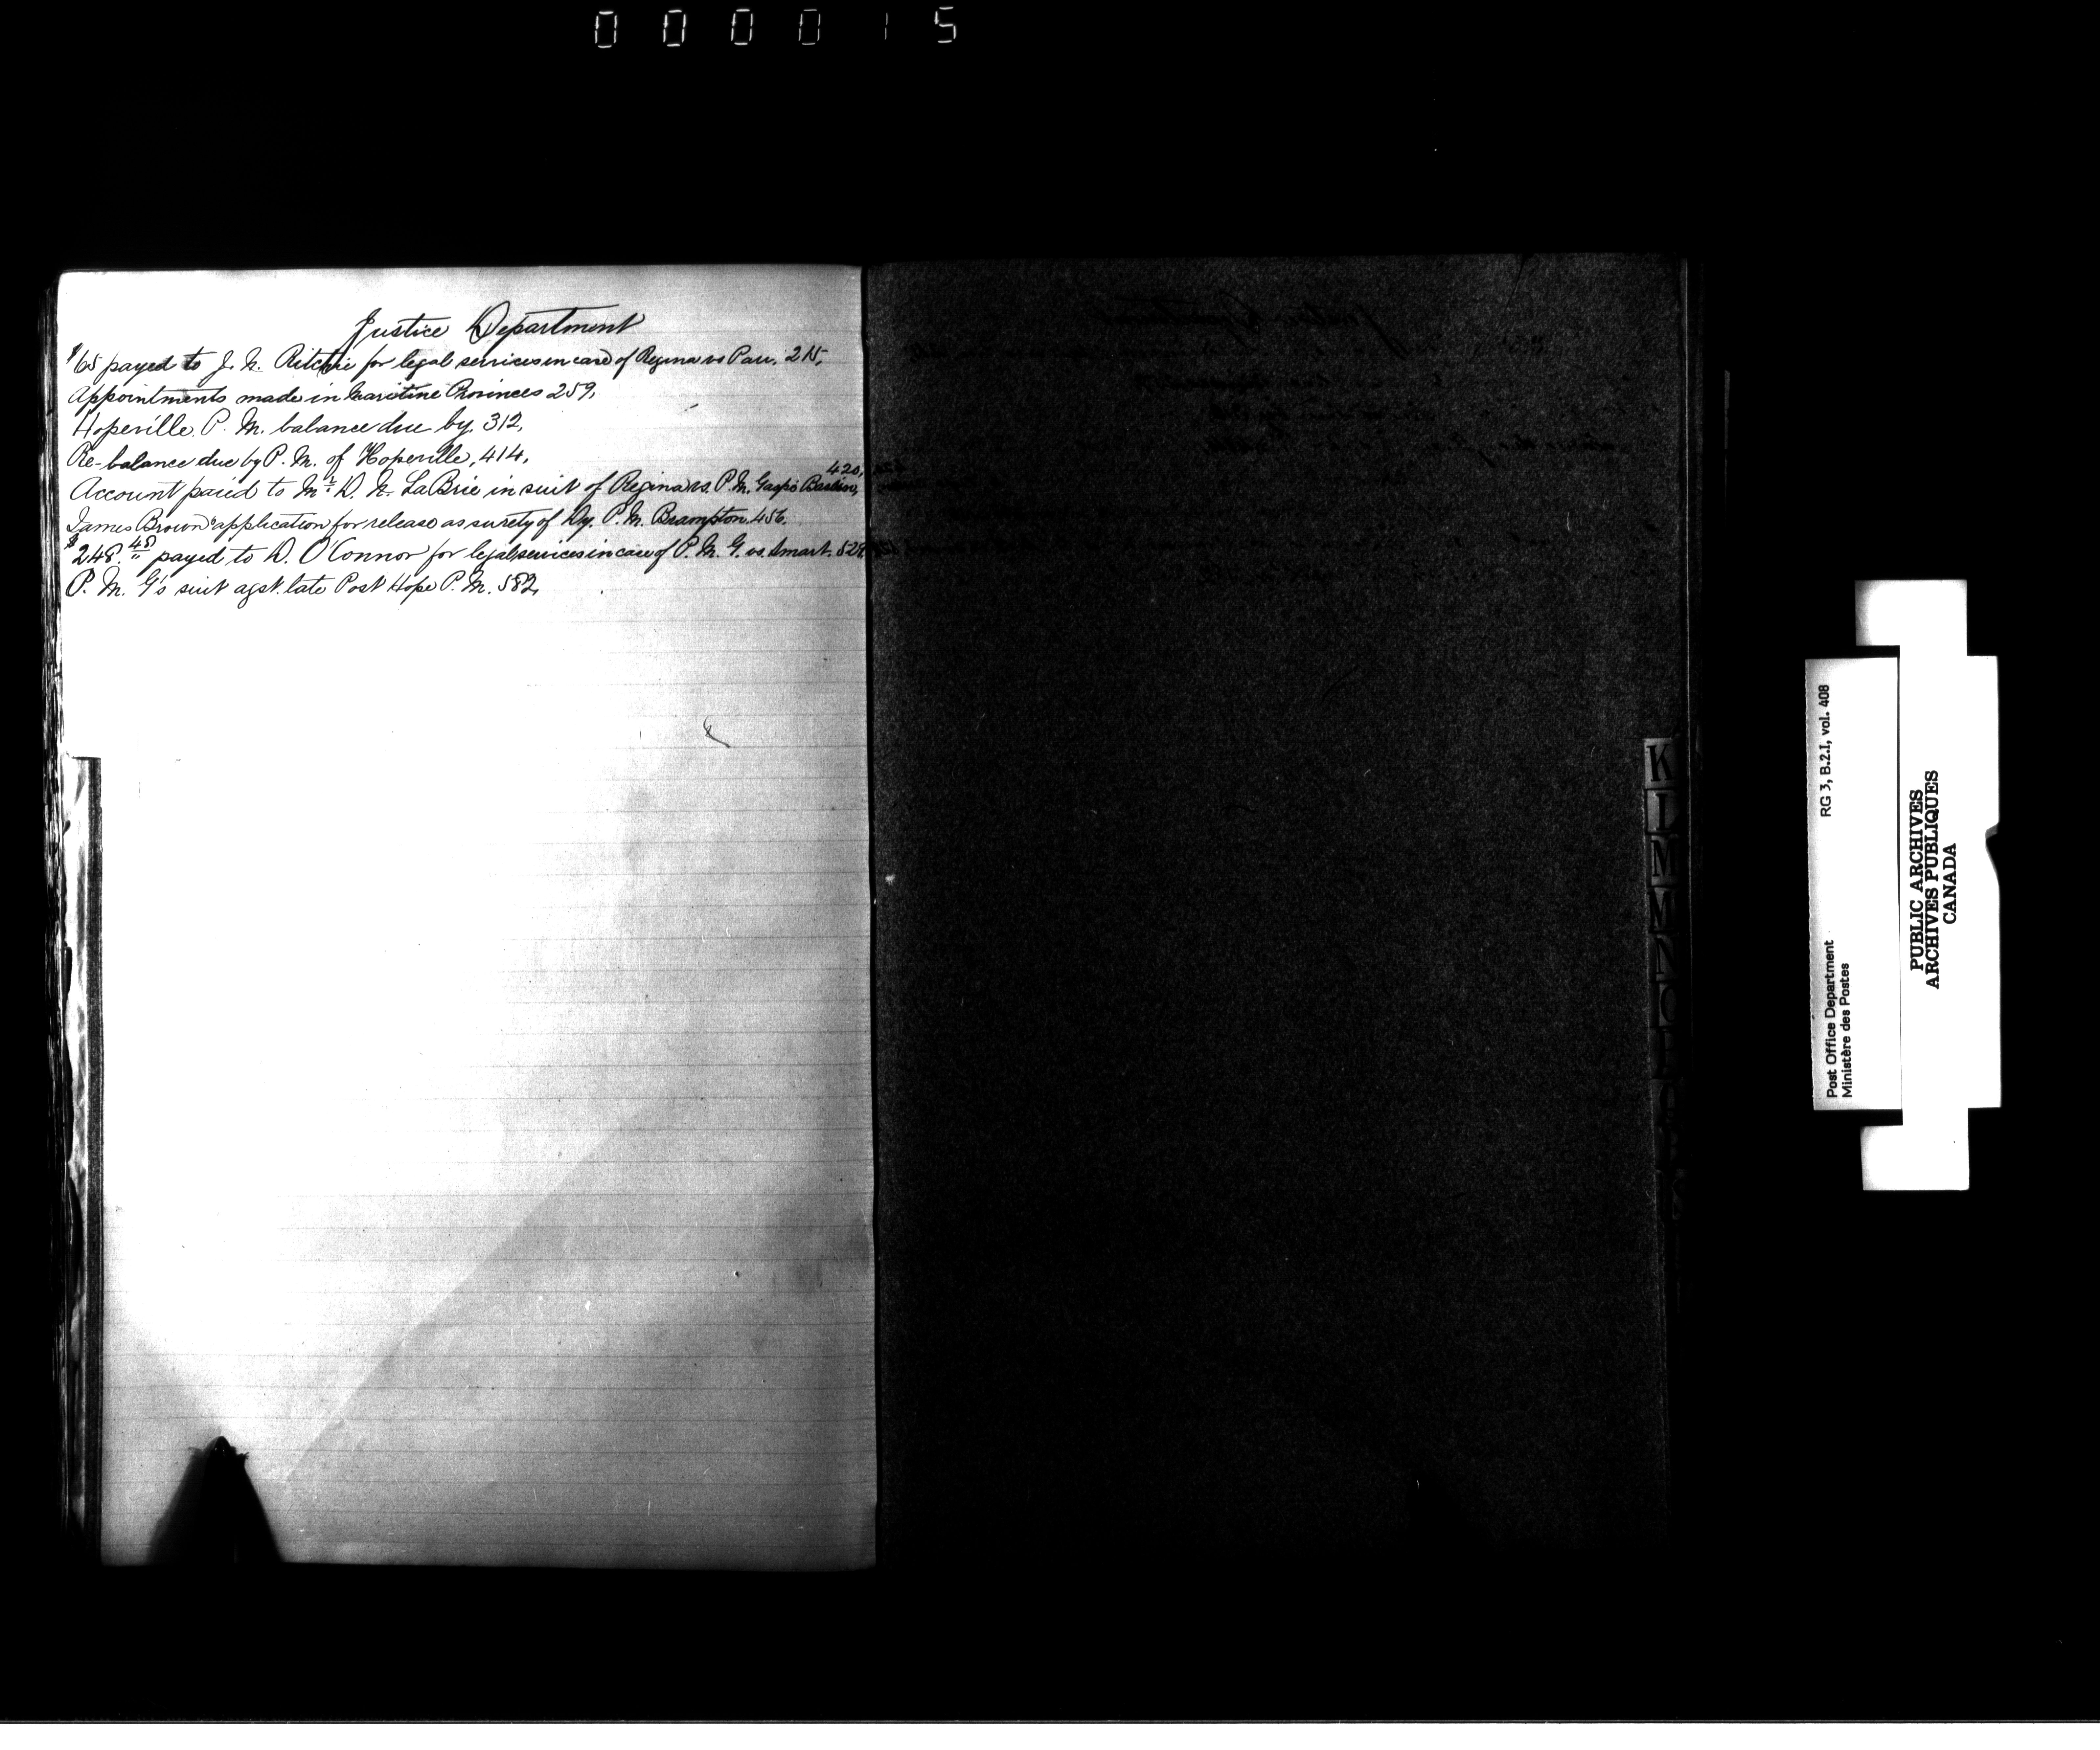 000015
Justice Department
$65 payed to J. N. Ritchie for legal services in case of Regina vs Parr. 215,
Appointments made in Maritine Provinces 259,
Hopeville P. M. balance due by, 312,
Re-balance due by P. M. of Hopeville, 414,
420,
Account paied to Mr. D. N. LaBrie in suit of Regina vs. P. M. Gaspé
James Brown application for release as surety of P. M. Brampton. 456.
$248.48 payed to D. O'Connor for legal services in case of P. M. G. vs. Smart.
P. M. G's suit agst. late Post Hope P. M. 582,
K
L
M
Mc
N
O
P
Post Office Department RG 3, B.2.I, vol. 408
Ministère des Postes
PUBLIC ARCHIVES
ARCHIVES PUBLIQUES
CANADA